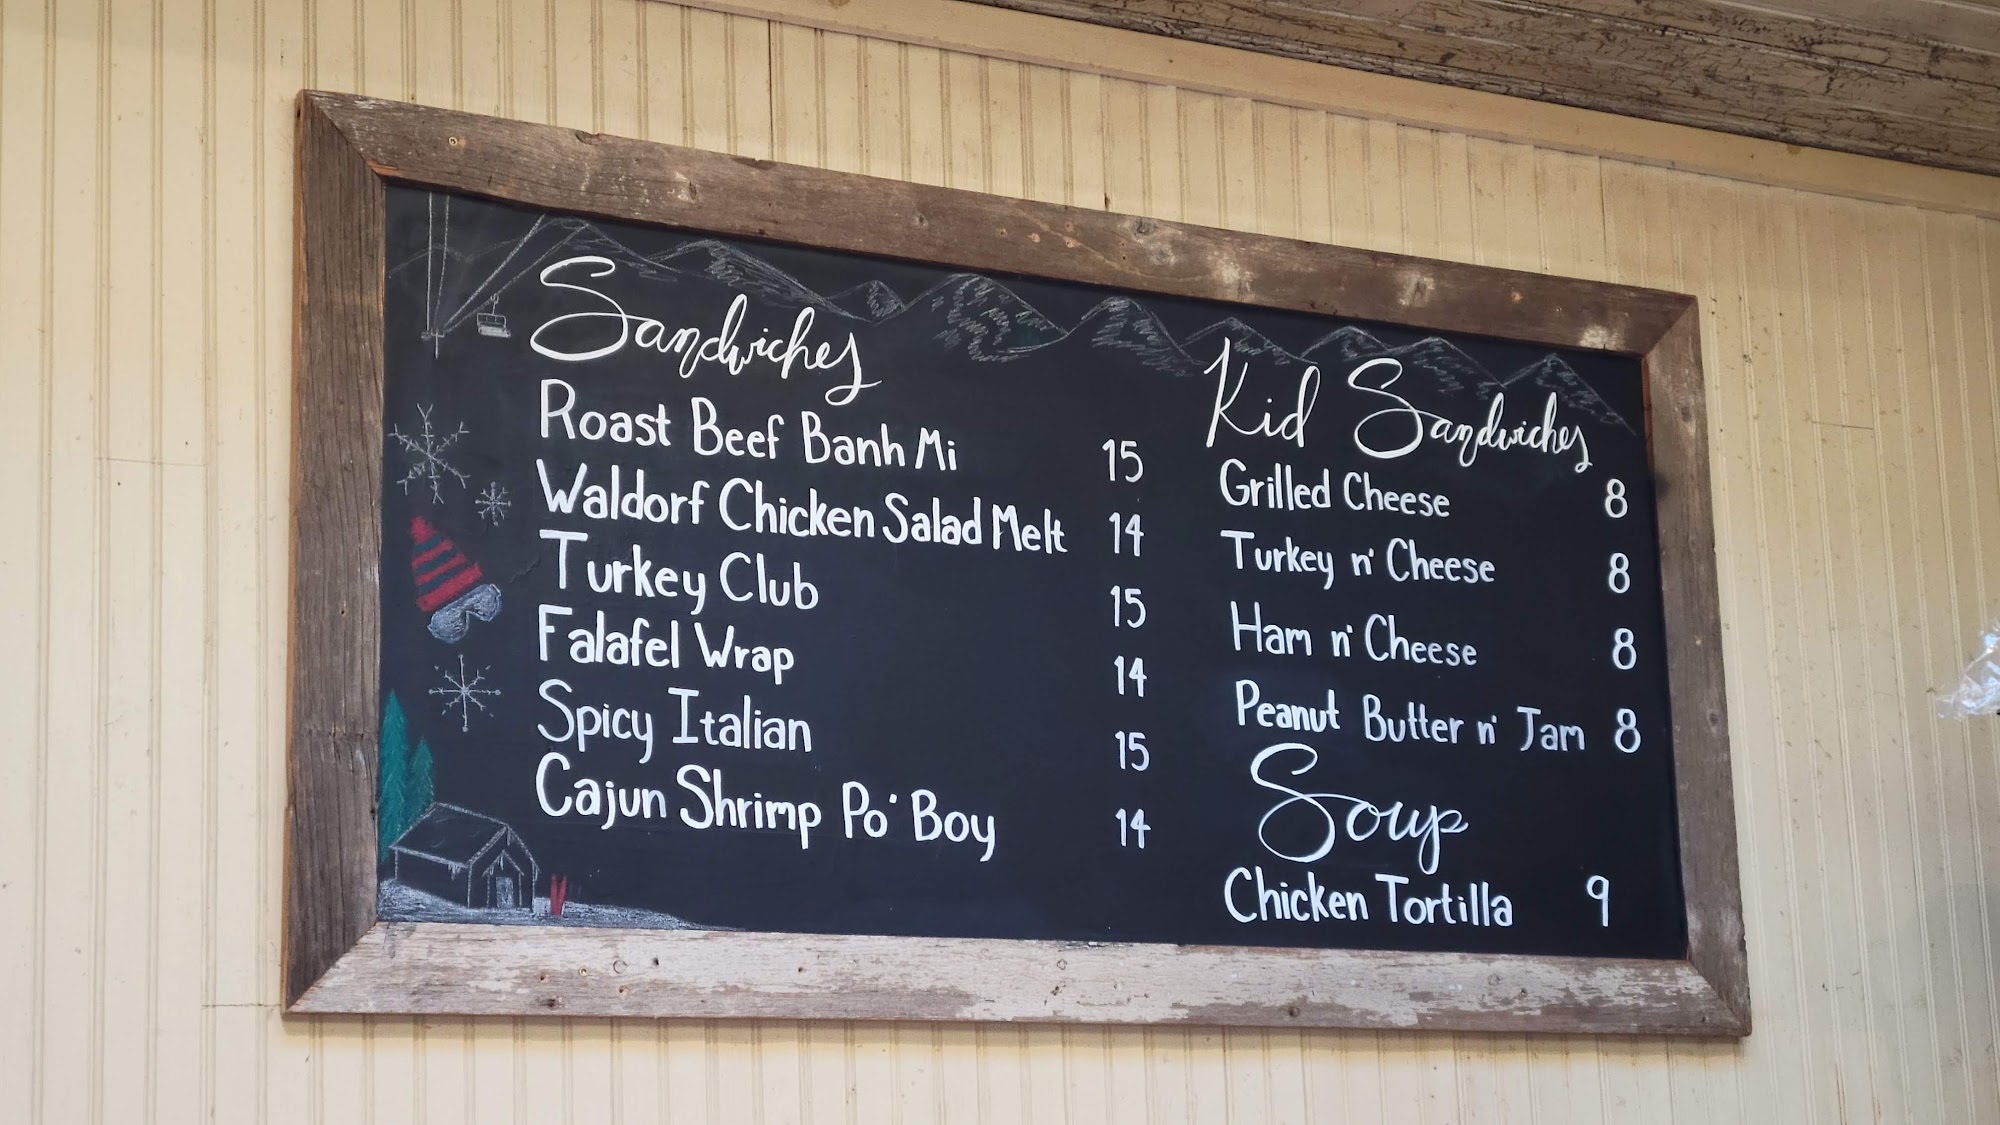 Sandwiches
Roast Beef Banh Mi 15
Waldorf Chicken Salad Melt 14
Turkey Club 15
Falafel Wrap 14
Spicy Italian 15
Cajun Shrimp Po' Boy 14
Kid Sandwiches
Grilled Cheese 8
Turkey n' Cheese 8
Ham n' Cheese 8
Peanut Butter n' Jam 8
Soup
Chicken Tortilla 9